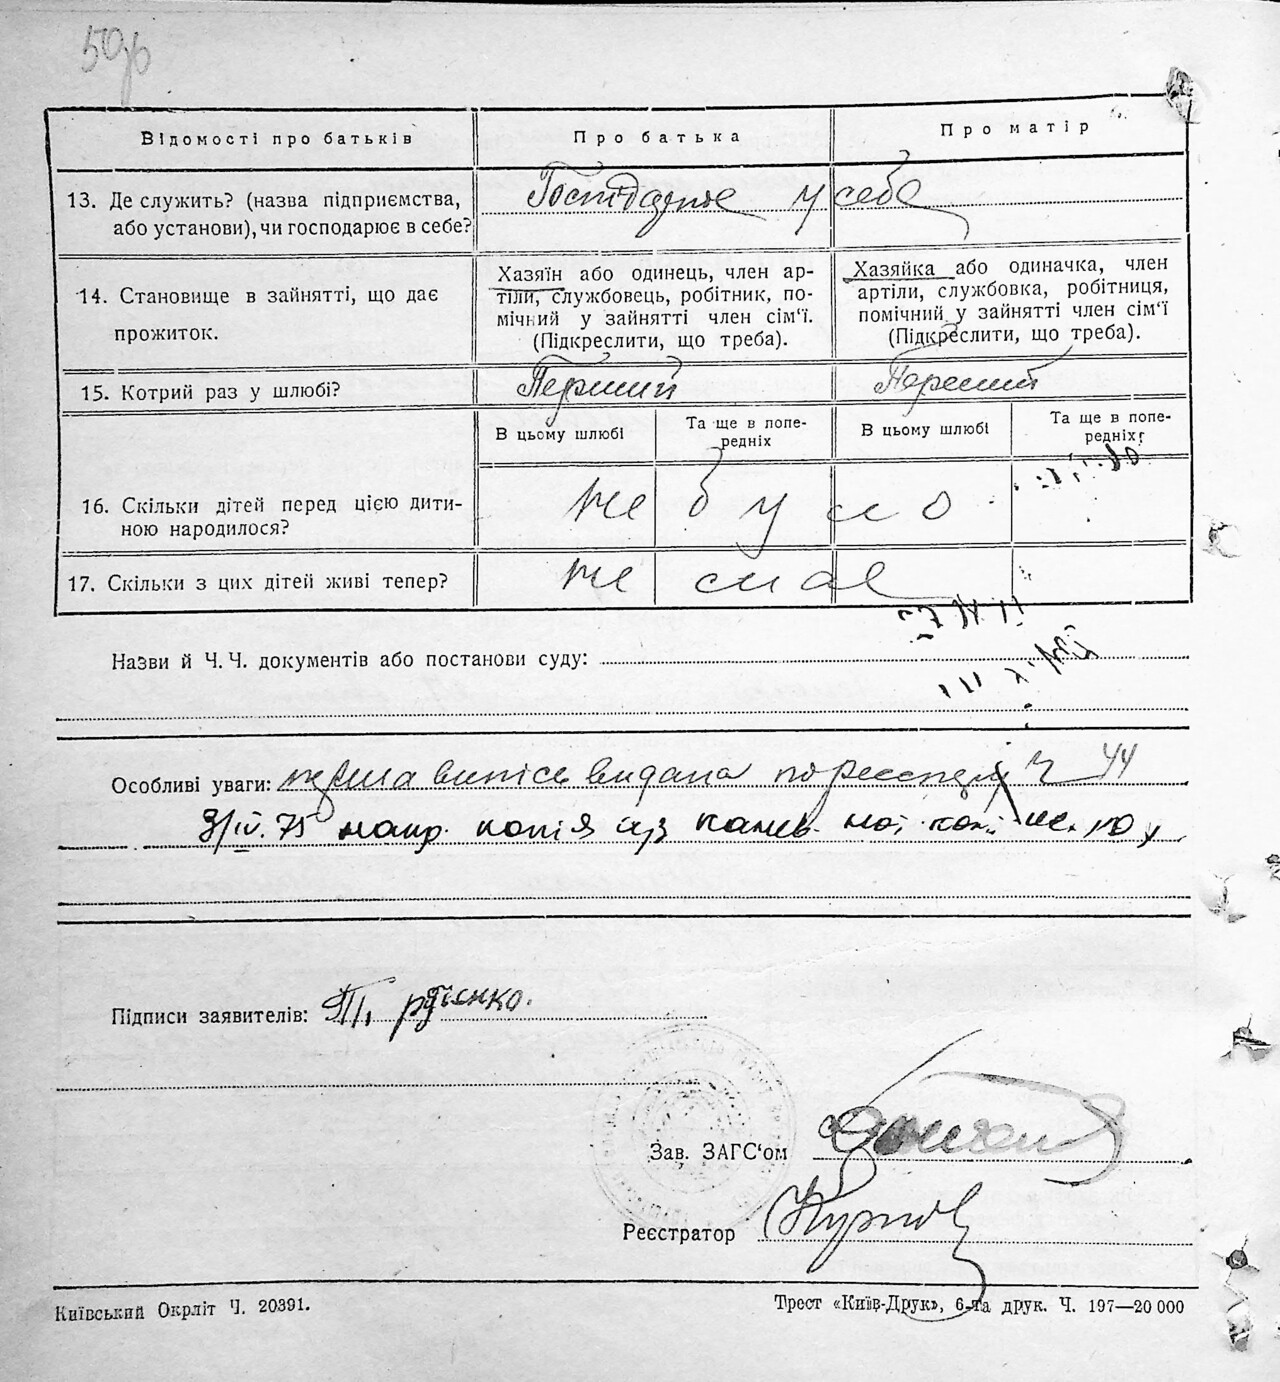 Відомості про батьків
Про батька
Про матір
13. Де служить? (назва підприємства,
або установи), чи господарює в себе?
Господарює у себе
14. Становище в зайнятті, що дає
прожиток.
Хазяїн або одинець, член ар-
тіли, службовець, робітник, по-
мічний у зайнятті член сім'ї.
(Підкреслити, що треба).
Хазяйка або одиначка, член
артіли, службовка, робітниця,
помічний у зайнятті член сім'ї
(Підкреслити, що треба).
15. Котрий раз у шлюбі?
Перший
Перший
В цьому шлюбі
Та ще в попе-
редніх
В цьому шлюбі
Та ще в попе-
редніх
16. Скільки дітей перед цією дити-
ною народилося?
не було
17. Скільки з цих дітей живі тепер?
не має
Назви й Ч. Ч. документів або постанови суду:
Особливі уваги: перша випись видана по реєстру Ч 44
3/IV. 75 напр. копія
Підписи заявителів:
Зав. ЗАГС'ом
Реєстратор
Київський Окрліт Ч. 20391.
Трест «Київ-Друк», 6-та друк. Ч. 197—20 000